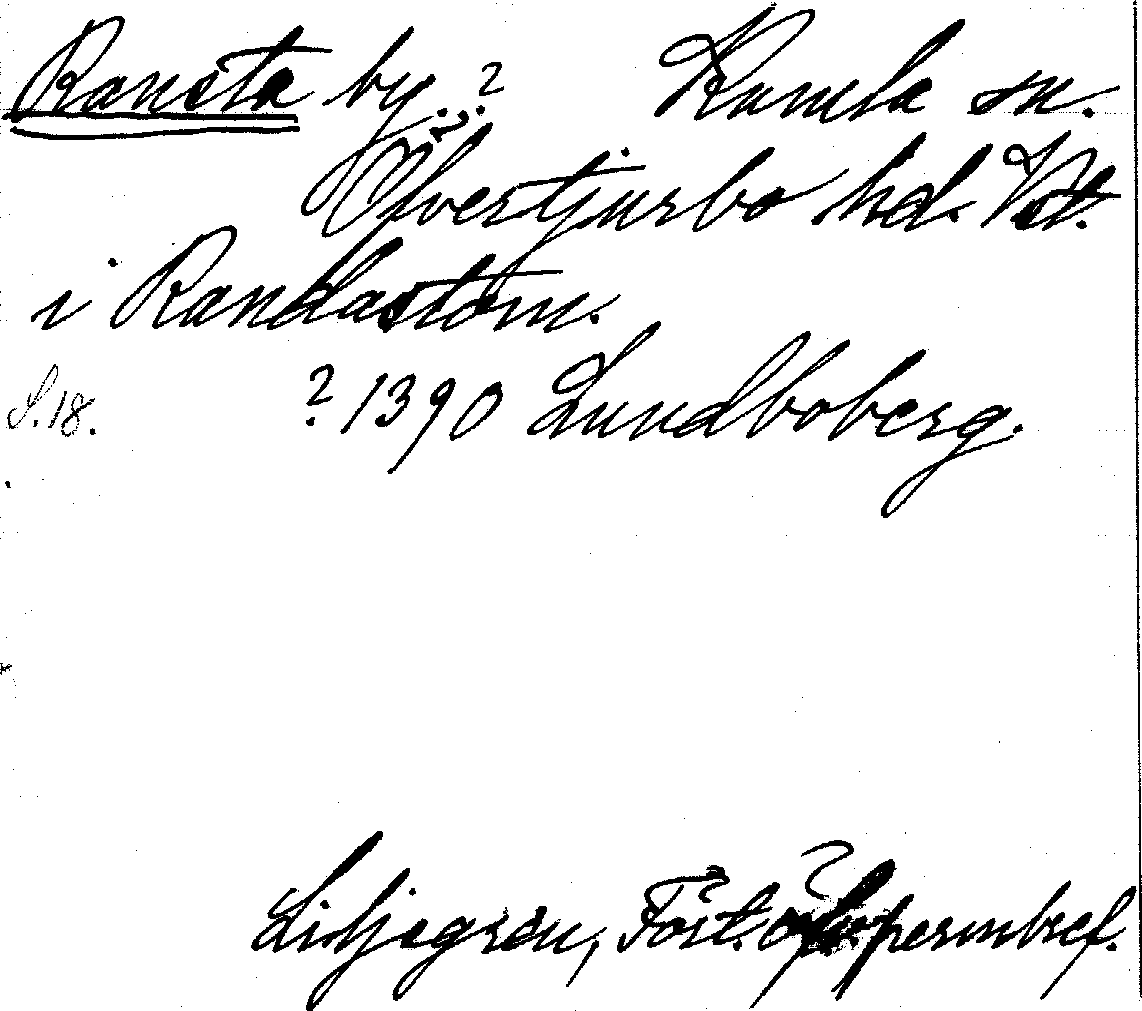 Ransta by.? Kumla sn.
Öfvertjurbo hd. Vstl.
i Randastom.
S.18. ? 1390 Lundboberg.
Liljegren, Fört. öf permbref.